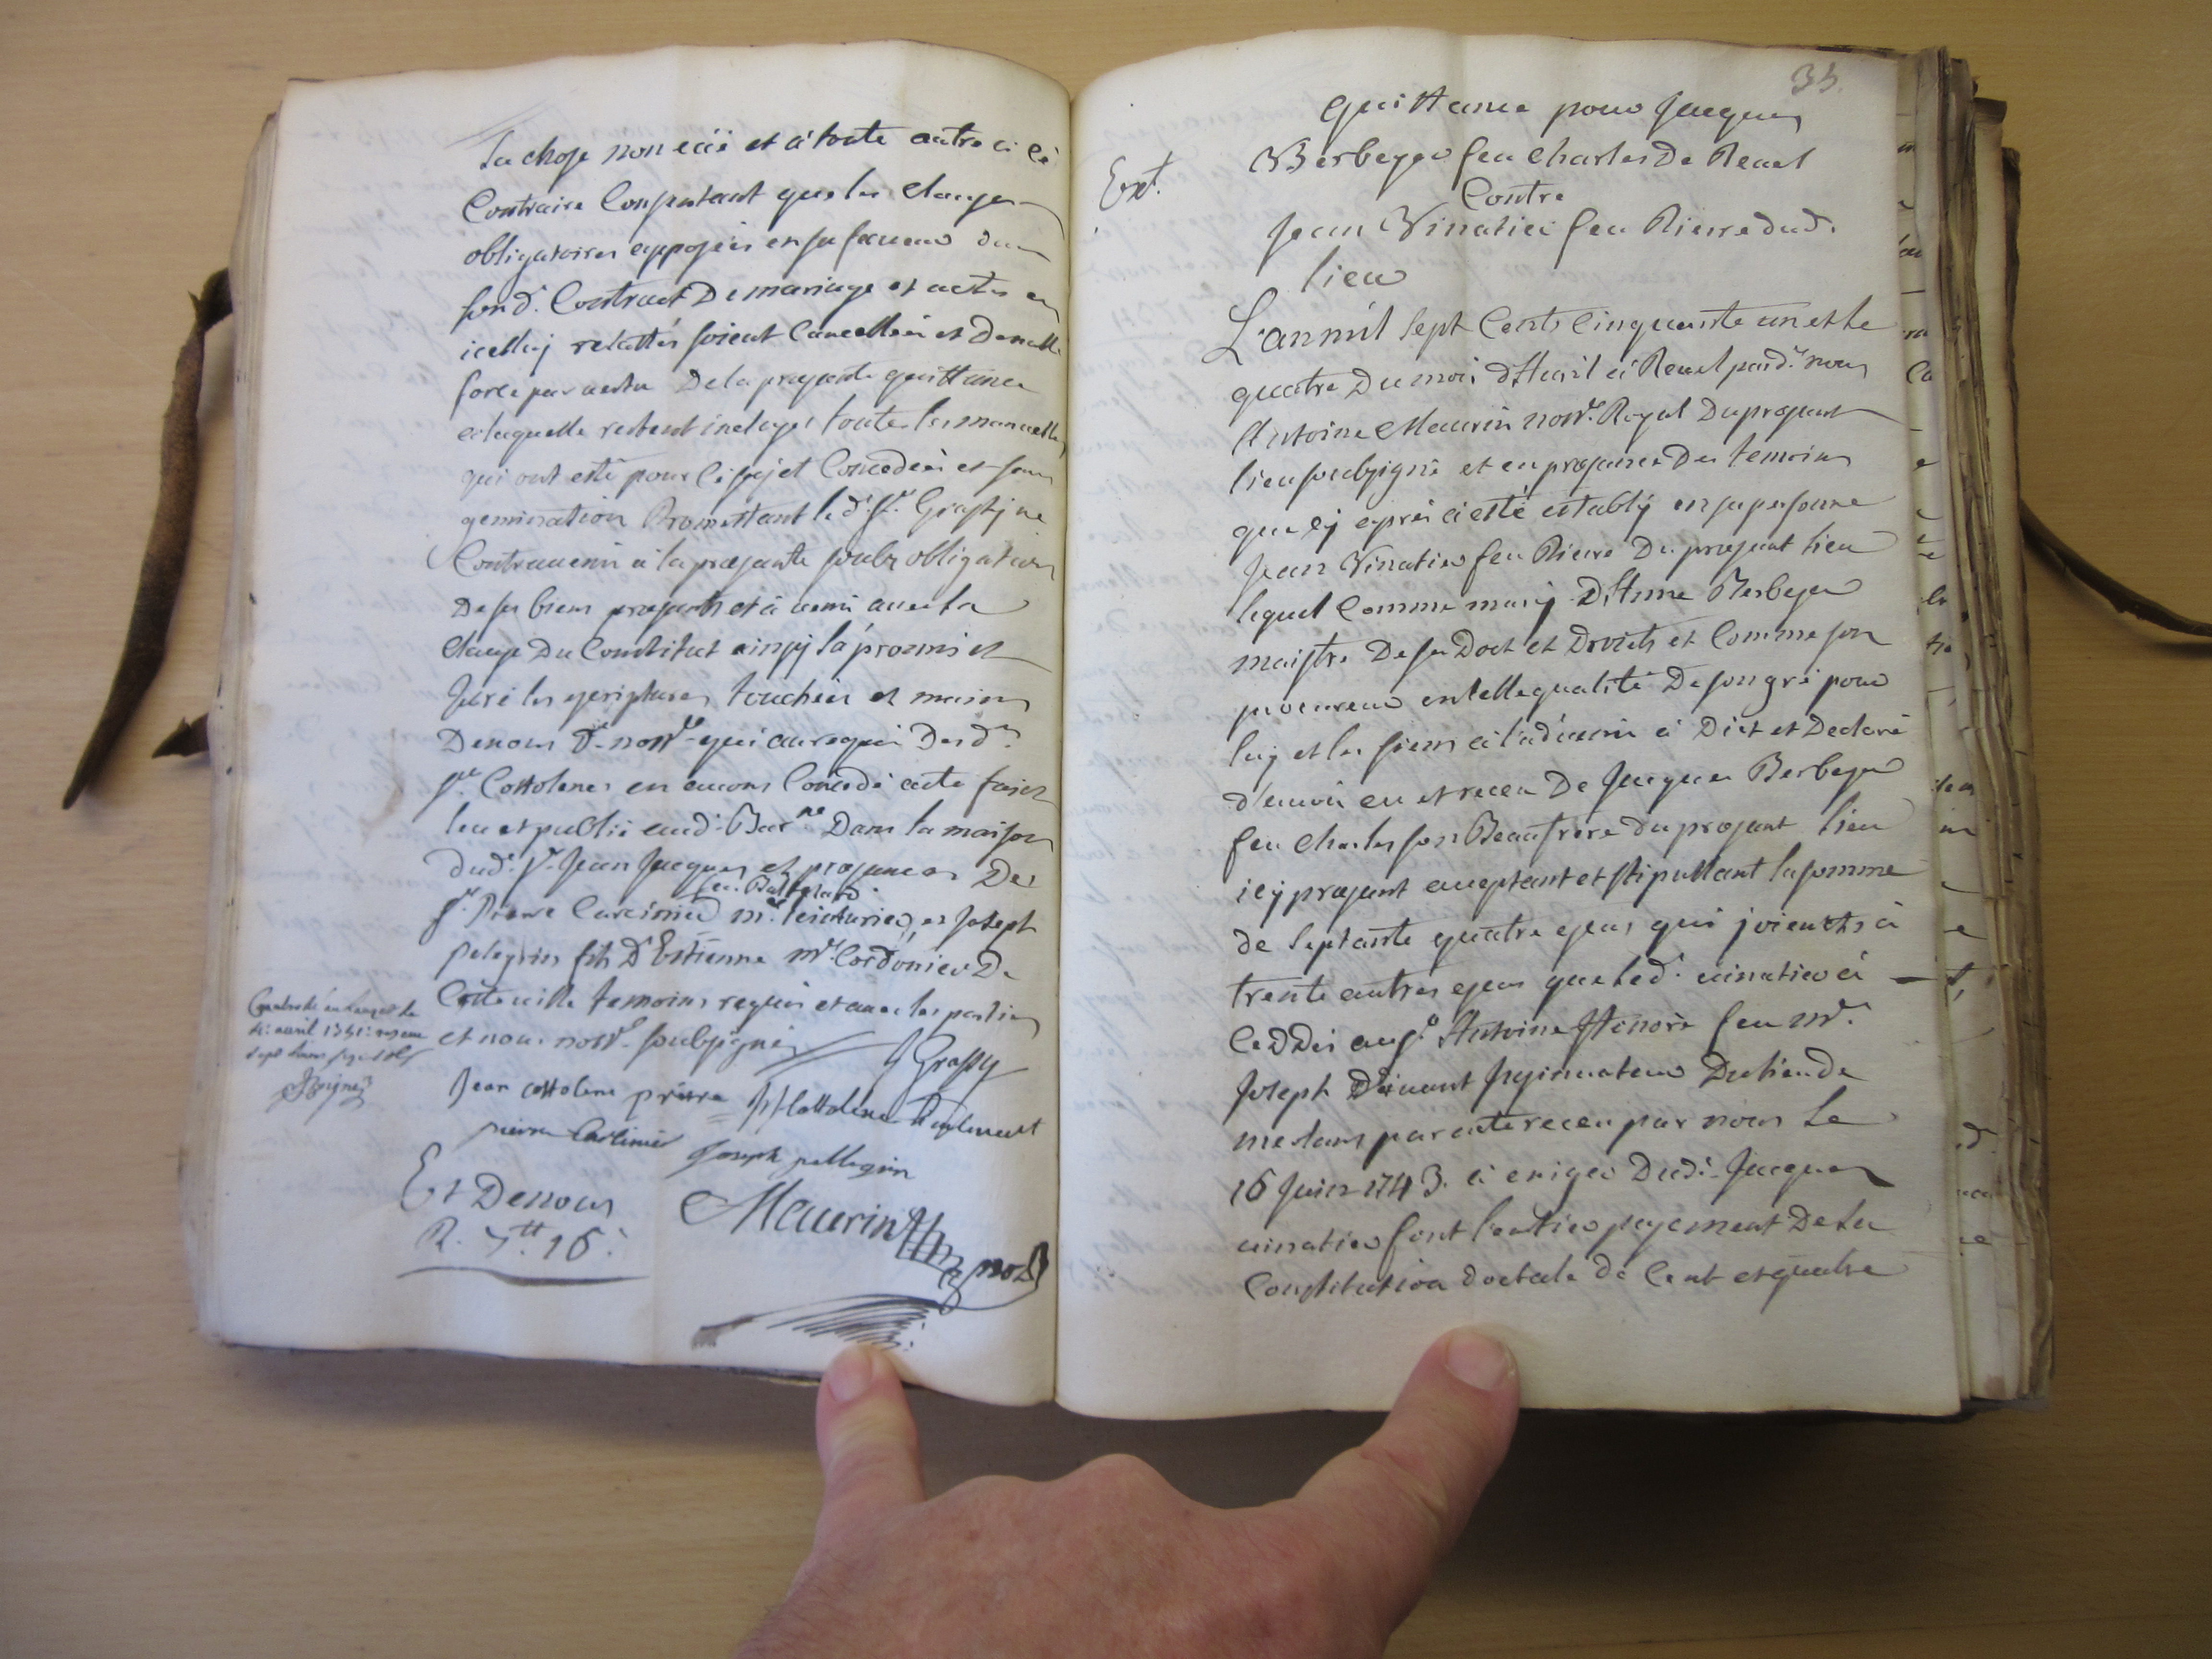 la chose non eüe et a toute autre a ce
Contraire Consentant que les Clauses
obligatoires apposées en sa faveur dans
sond. Contract De mariage et actes en
icelluy relattés soient Cancellées et De nulle
force par vertu De la presante quittance
a laquelle restent incluses toutes les manuelles
qui ont esté pour ce sujet Concedées et sans
gemination Promettant led. Sr. Grassy ne
Contrevenir a la presante soubz obligation
De ses biens presants et a venir avec la
Clause Du Constitut ainsy l'a promis et
Juré les escriptures touchées et mains
De nous d. nore. qui au requis Desd.
srs. Cottolenes en avons Concedé acte faict
leu et publié aud. Barne Dans la maison
dud. Sr. Jean Jacques et presances Des
feu Balthazard
Sr. Pierre Carcimier mr. teinturier, et Joseph
pelegrin fils D'Estienne mr. Cordonier De
Cette ville temoins requis et avec les parties
et nous nore. soubsignés
Grassy
Jean cottolene prestre
pierre Carlimier Joseph pellegrin
Et De nous Maurin
R. 7tt. 16. nore
4. avril 1751.
35.
quittance pour Jacques
Ext. Berbeyer feu Charles De Revel
Contre
Jean Vinatier feu Pierre dud.
lieu
L'an mil sept Cents Cinquante un et le
quatre Du mois d'Avril a Revel pard. nous
Antoine Maurin nore. Royal Du presant
lieu soubsigné et en presance Des temoins
que cy apres a esté estably en sa personne
Jean Vinatier feu Pierre Du presant lieu
lequel Comme mary D'Anne Berbeyer
maistre De ses Dot et Droits et Comme son
procureur en telle qualité De son gré pour
luy et les siens a l'advenir a Dict et Declaré
d'avoir eu et receu De Jacques Berbeyer
feu Charles son Beaufrere du presant lieu
icy presant acceptant et stipullant la somme
de septante quatre escus qui joients a
trente autres escus que led. vinatier a
Ceddés au sr. Antoine Honoré feu mr.
Joseph Vivant Insinuateur Du lieu de
me par acte receu par nous Le
16 Juin 1743. a exiger Dud. Jacques
vinatier font l'entier payement De la
Constitution doctale de Cent et quatre